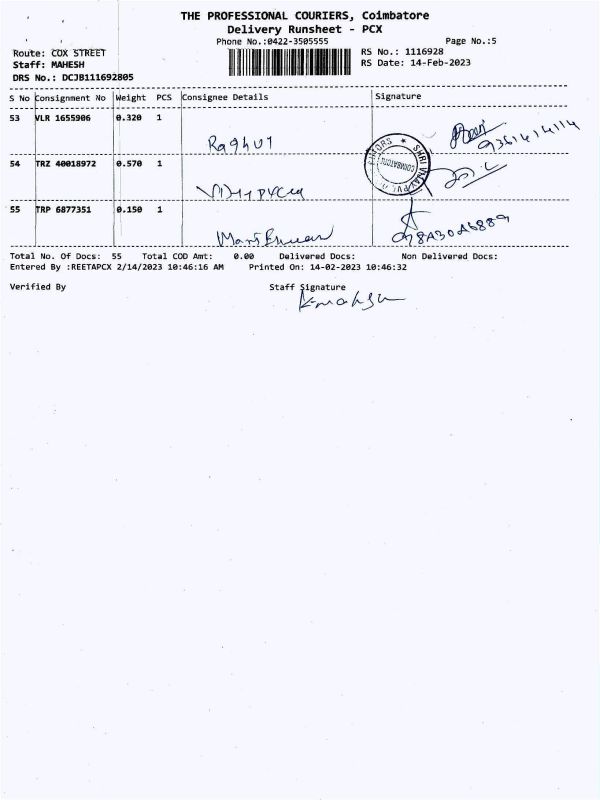 THE PROFESSIONAL COURIERS, Coimbatore
Delivery Runsheet - PCX
Phone No.:0422-3505555 Page No.:5
Route: COX STREET RS No.: 1116928
Staff: MAHESH RS Date: 14-Feb-2023
DRS No.: DCJB111692805
S No Consignment No Weight PCS Consignee Details Signature
53 VLR 1655906 0.320 1
Raghul
54 TRZ 40018972 0.570 1
COIMBATORE
55 TRP 6877351 0.150 1
Total No. Of Docs: 55 Total COD Amt: 0.00 Delivered Docs: Non Delivered Docs:
Entered By :REETAPCX 2/14/2023 10:46:16 AM Printed On: 14-02-2023 10:46:32
Verified By Staff Signature